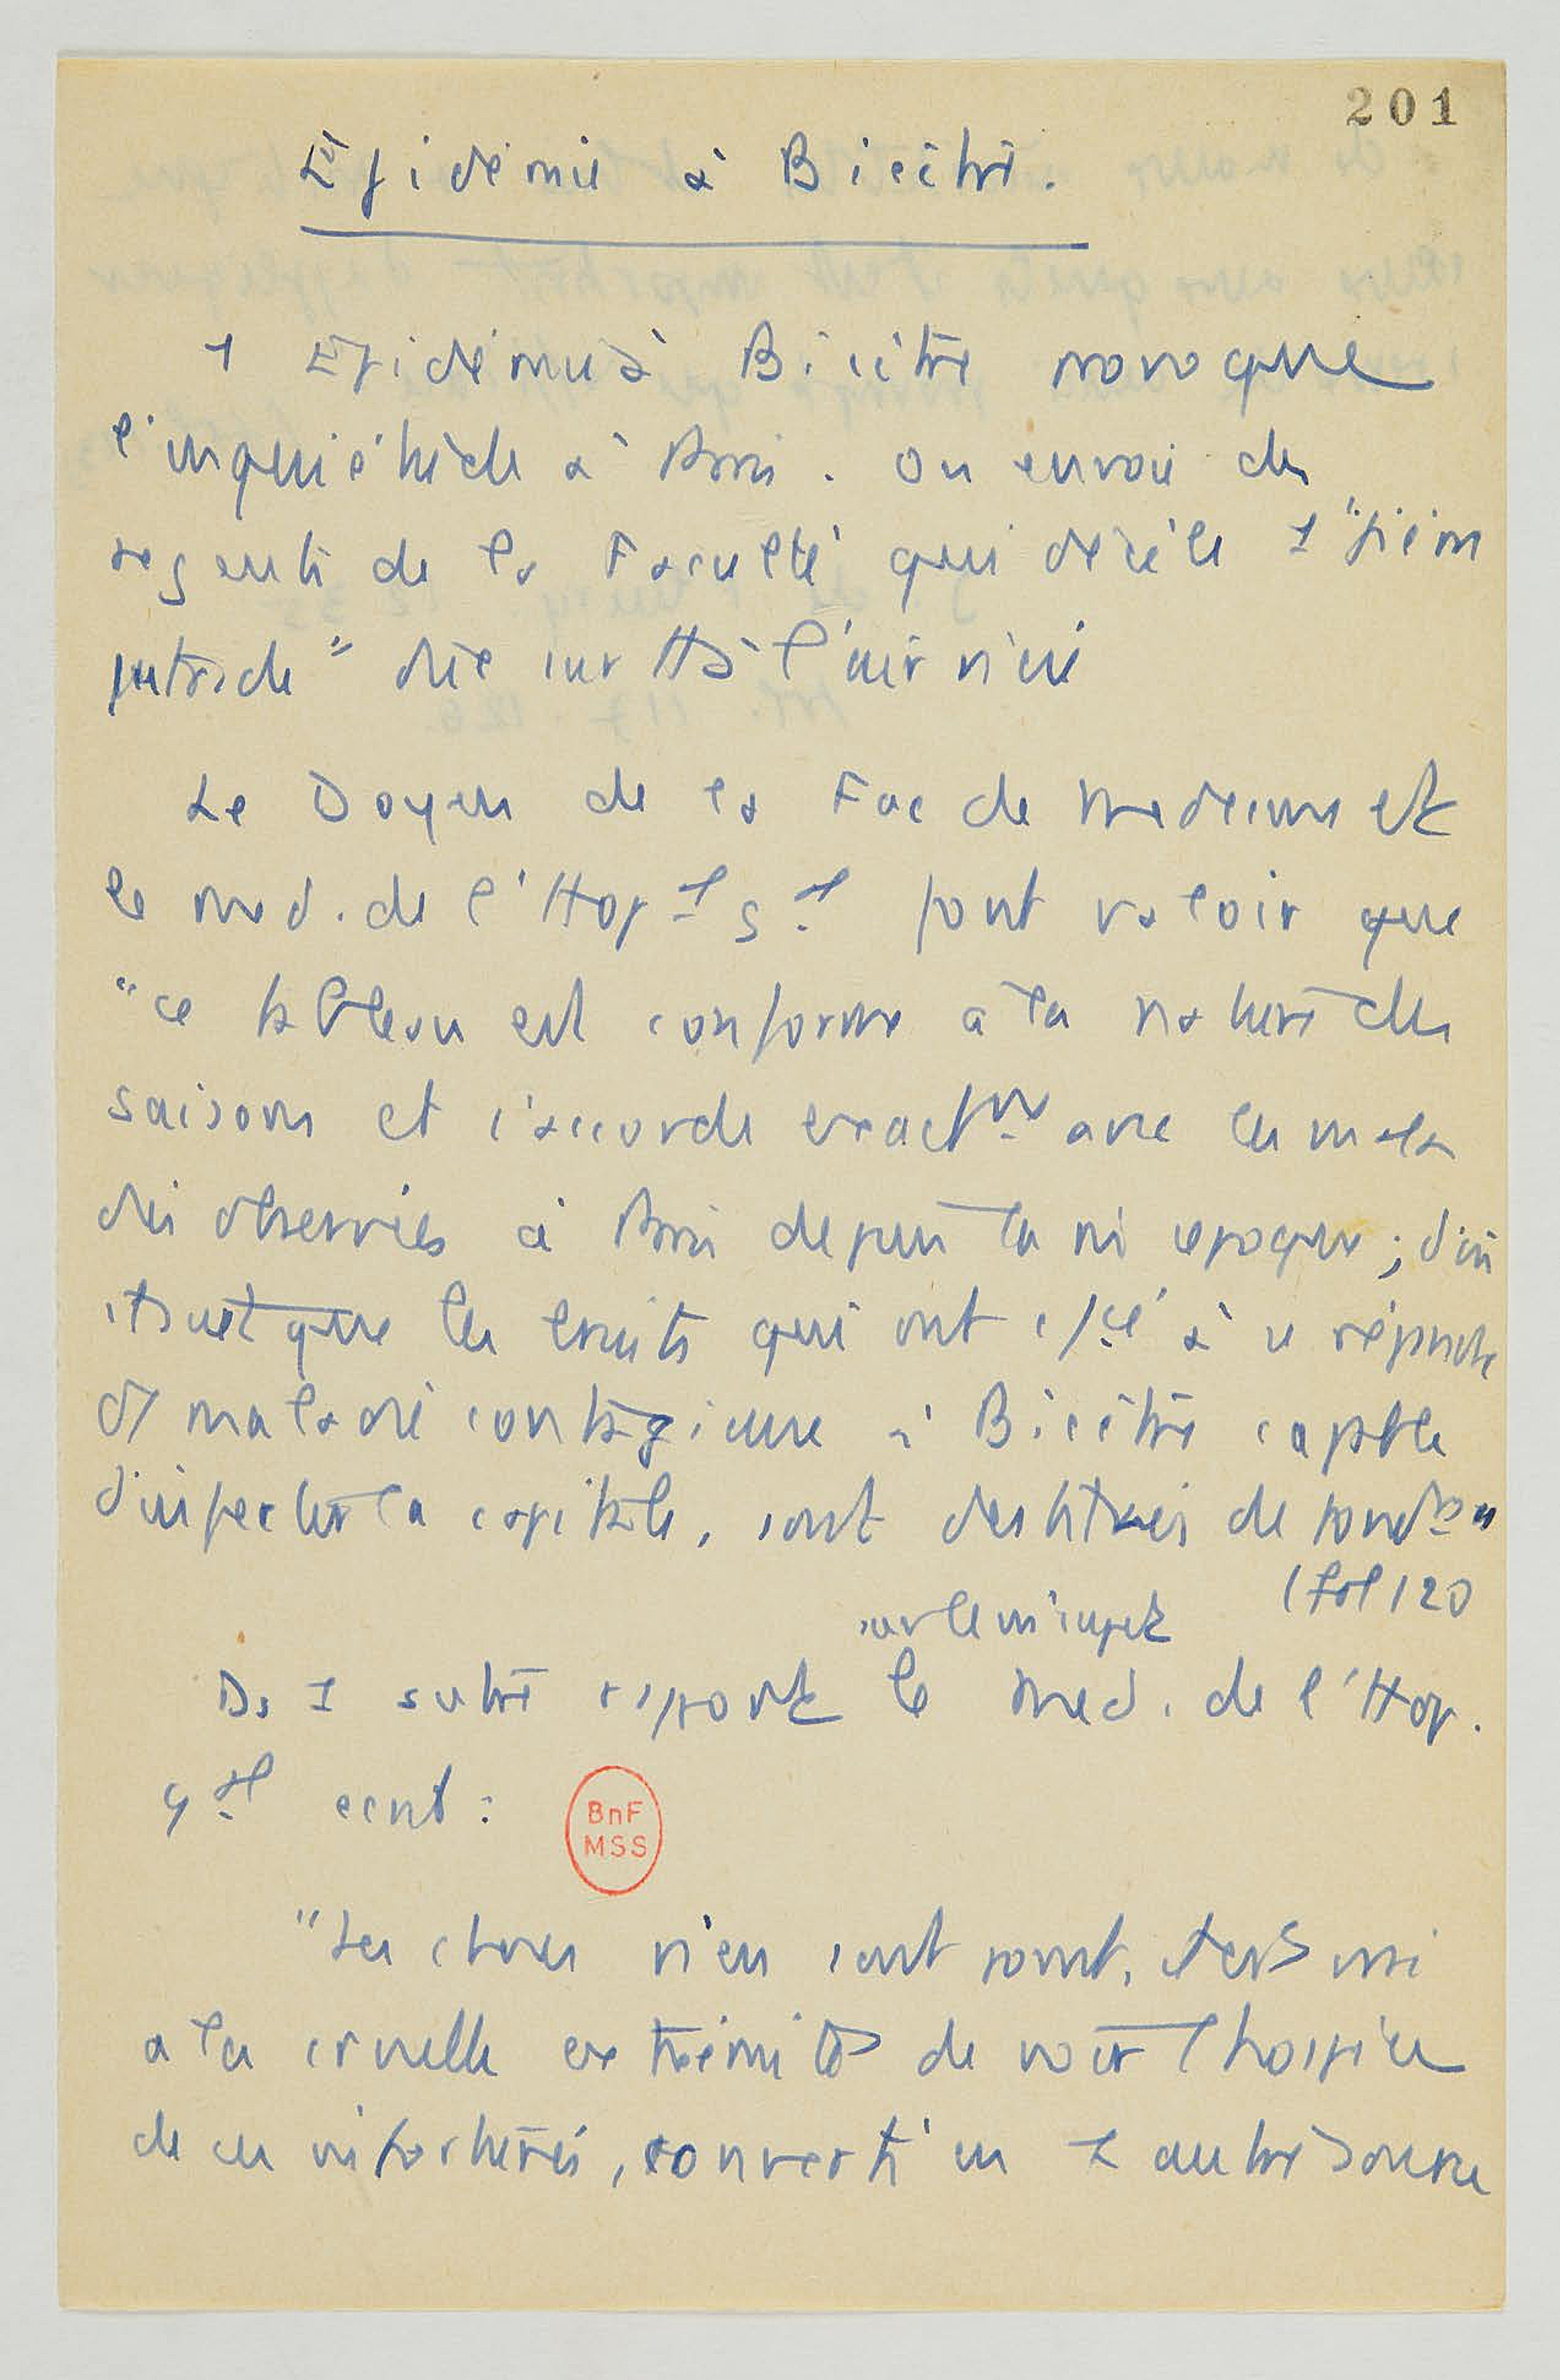 201
Epidémie à Bicêtre.
1 Epidémie à Bicêtre provoque
l'inquiétude à Paris. On envoie des
regents de la Faculté qui décèle 1 "fièvre
putride" due surtt à l'air vicié
Le Doyen de la Fac de Medecine et
le med. de l'Hop l G al font valoir que
"ce tableau est conforme à la nature des
saisons et s'accorde exactmt avec les mala
dies observées à Paris depuis la mê epoque; d'où
il suit que les bruits qui ont cé à se répandre
d'1 maladie contagieuse à Bicêtre capable
d'infecter la capitale, sont destitués de fondt"
(fol 120
sur le m sujet
Ds 1 autre rapport le Med. de l'Hop.
Gal ecrit:
BnF
MSS
"Les choses n'en sont point,
a la cruelle extrémité de voir l'hospice
de ces infortunés, converti en 1 autre source